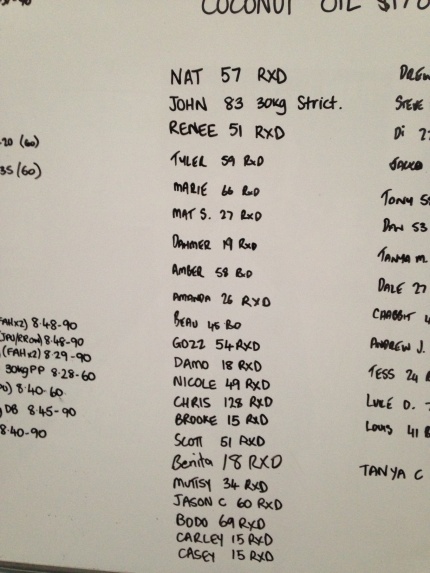 COCONUT OIL $170
NAT 57 RXD
JOHN 83 30kg Strict.
RENEE 51 RXD
TYLER 59 RxD
MARIE 66 RxD
MAT S. 27 RxD
DAHMER 19 RxD
AMBER 58 RxD
AMANDA 26 RXD
BEAU 45 RD
GOZZ 54 RXD
DAMO 18 RXD
NICOLE 49 RXD
CHRIS 128 RXD
BROOKE 15 RXD
SCOTT 51 RXD
Benita 18 RXD
MUTTSY 34 RXD
JASON C 60 RXD
BODO 69 RXD
CARLEY 15 RXD
CASEY 15 RXD
20 (60)
35 (60)
(FAHx2) 8.48-90
8.48-90
(FAHx2) 8.29-90
30kg PP 8.28-60
8.40-60
DB 8.45-90
8.40-90
DREW
STEVE
Di 2
TONY 5
DAN 53
TANYA M.
DALE 27
CRABBIT 4
ANDREW J.
TESS 24
LUKE O.
LOUIS 41
TANYA C